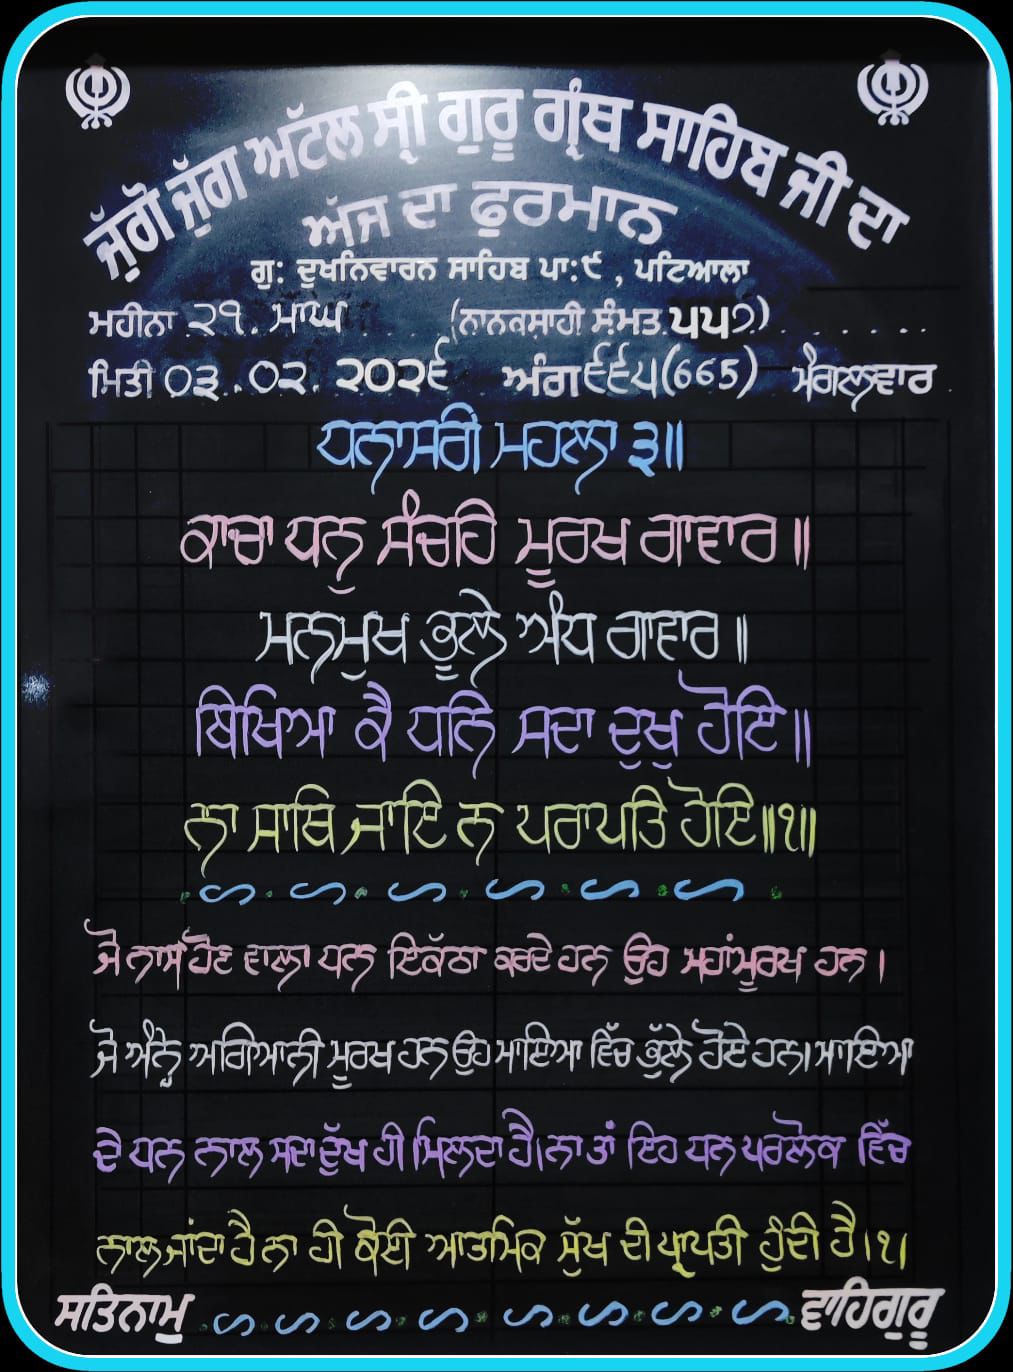 ਜੁੱਗੋ ਜੁੱਗ ਅੱਟਲ ਸ੍ਰੀ ਗੁਰੂ ਗ੍ਰੰਥ ਸਾਹਿਬ ਜੀ ਦਾ
ਅੱਜ ਦਾ ਫੁਰਮਾਨ
ਗੁ: ਦੁਖਨਿਵਾਰਨ ਸਾਹਿਬ ਪਾ:੯ , ਪਟਿਆਲਾ
ਮਹੀਨਾ ੨੧. ਮਾਘ (ਨਾਨਕਸ਼ਾਹੀ ਸੰਮਤ ੫੫੭)
ਮਿਤੀ ੦੩. ੦੨. ੨੦੨੬ ਅੰਗ ੬੬੫ (665) ਮੰਗਲਵਾਰ
ਧਨਾਸਰੀ ਮਹਲਾ ੩॥
ਕਾਚਾ ਧਨੁ ਸੰਚਹਿ ਮੂਰਖ ਗਾਵਾਰ ॥
ਮਨਮੁਖ ਭੂਲੇ ਅੰਧ ਗਾਵਾਰ ॥
ਬਿਖਿਆ ਕੈ ਧਨਿ ਸਦਾ ਦੁਖੁ ਹੋਇ ॥
ਨਾ ਸਾਥਿ ਜਾਇ ਨ ਪਰਾਪਤਿ ਹੋਇ॥੧॥
ਜੋ ਨਾਸ ਹੋਣ ਵਾਲਾ ਧਨ ਇਕੱਠਾ ਕਰਦੇ ਹਨ ਉਹ ਮਹਾਂਮੂਰਖ ਹਨ ।
ਜੋ ਅੰਨ੍ਹੇ ਅਗਿਆਨੀ ਮੂਰਖ ਹਨ ਉਹ ਮਾਇਆ ਵਿੱਚ ਭੁੱਲੇ ਹੋਏ ਹਨ। ਮਾਇਆ
ਦੇ ਧਨ ਨਾਲ ਸਦਾ ਦੁੱਖ ਹੀ ਮਿਲਦਾ ਹੈ। ਨਾ ਤਾਂ ਇਹ ਧਨ ਪਰਲੋਕ ਵਿੱਚ
ਨਾਲ ਜਾਂਦਾ ਹੈ ਨਾ ਹੀ ਕੋਈ ਆਤਮਿਕ ਸੁੱਖ ਦੀ ਪ੍ਰਾਪਤੀ ਹੁੰਦੀ ਹੈ ।੧।
ਸਤਿਨਾਮੁ ਵਾਹਿਗੁਰੂ